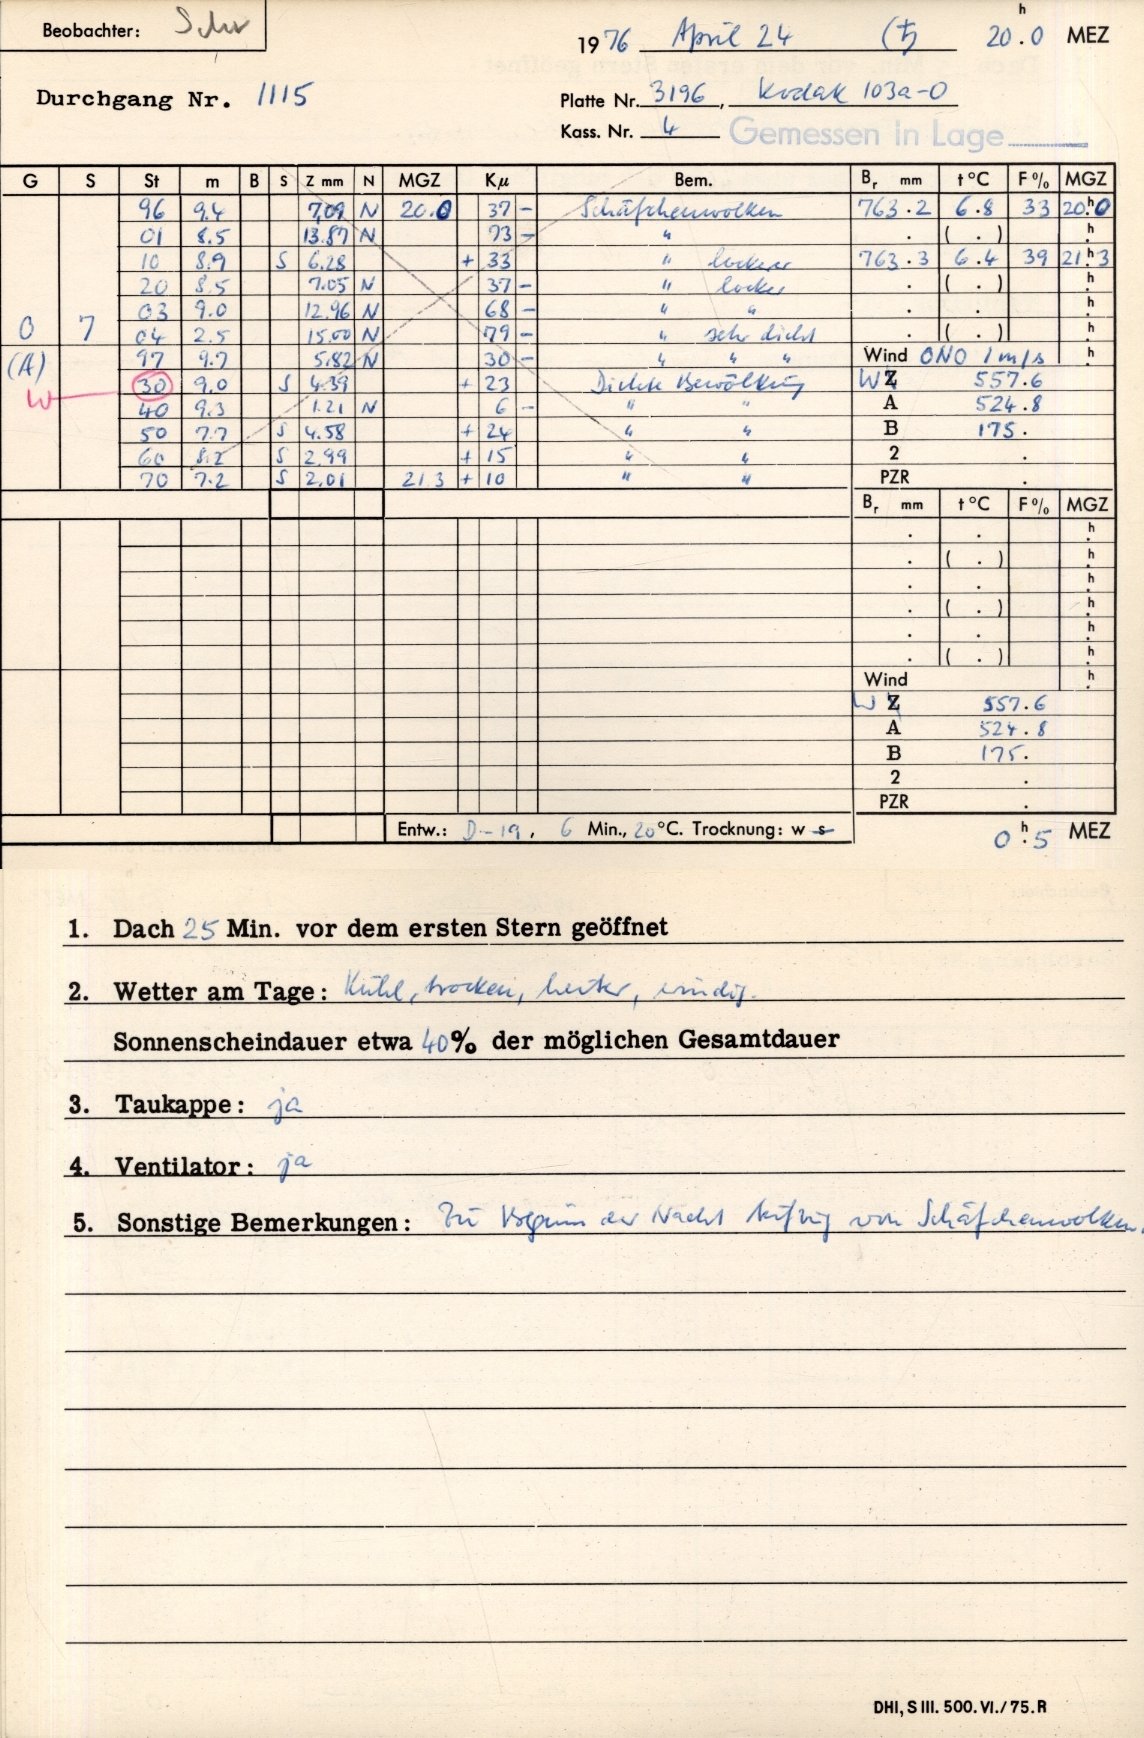 Beobachter: Schr
1976 April 24 (♄) 20.0 h MEZ
Durchgang Nr. 1115
Platte Nr. 3196, Kodak 103a-O
Kass. Nr. 4 Gemessen in Lage
G S St m B S Z mm N MGZ Kμ Bem. Br mm t °C F % MGZ
96 9.4 7.09 N 20.0 37 – Schäfchenwolken 763.2 6.8 33 20.h0
01 8.5 13.87 N 73 – " . ( . ) h
10 8.9 S 6.28 + 33 " lockerer 763.3 6.4 39 21.h3
20 8.5 7.05 N 37 – " locker . ( . ) h
03 9.0 12.96 N 68 – " " . . h
0 7 04 2.5 15.00 N 79 – " sehr dicht . ( . ) h
(A) 97 9.7 5.82 N 30 – " " " Wind ONO 1 m/s h
W 30 9.0 S 4.39 + 23 Dichte Bewölkung WZ 557.6
40 9.3 1.21 N 6 – " " A 524.8
50 7.7 S 4.58 + 24 " " B 175.
60 8.2 S 2.99 + 15 " " 2 .
70 7.2 S 2.01 21.3 + 10 " " PZR .
Br mm t °C F % MGZ
. . h
. ( . ) h
. . h
. ( . ) h
. . h
. ( . ) h
Wind h
W Z 557.6
A 524.8
B 175.
2 .
PZR .
Entw.: D-19, 6 Min., 20°C. Trocknung: w s
0.h5 MEZ
1. Dach 25 Min. vor dem ersten Stern geöffnet
2. Wetter am Tage: Kühl, trocken, heiter, windig.
Sonnenscheindauer etwa 40% der möglichen Gesamtdauer
3. Taukappe: ja
4. Ventilator: ja
5. Sonstige Bemerkungen: Zu Beginn der Nacht Aufzug von Schäfchenwolken.
DHI, S III. 500. VI./75. R